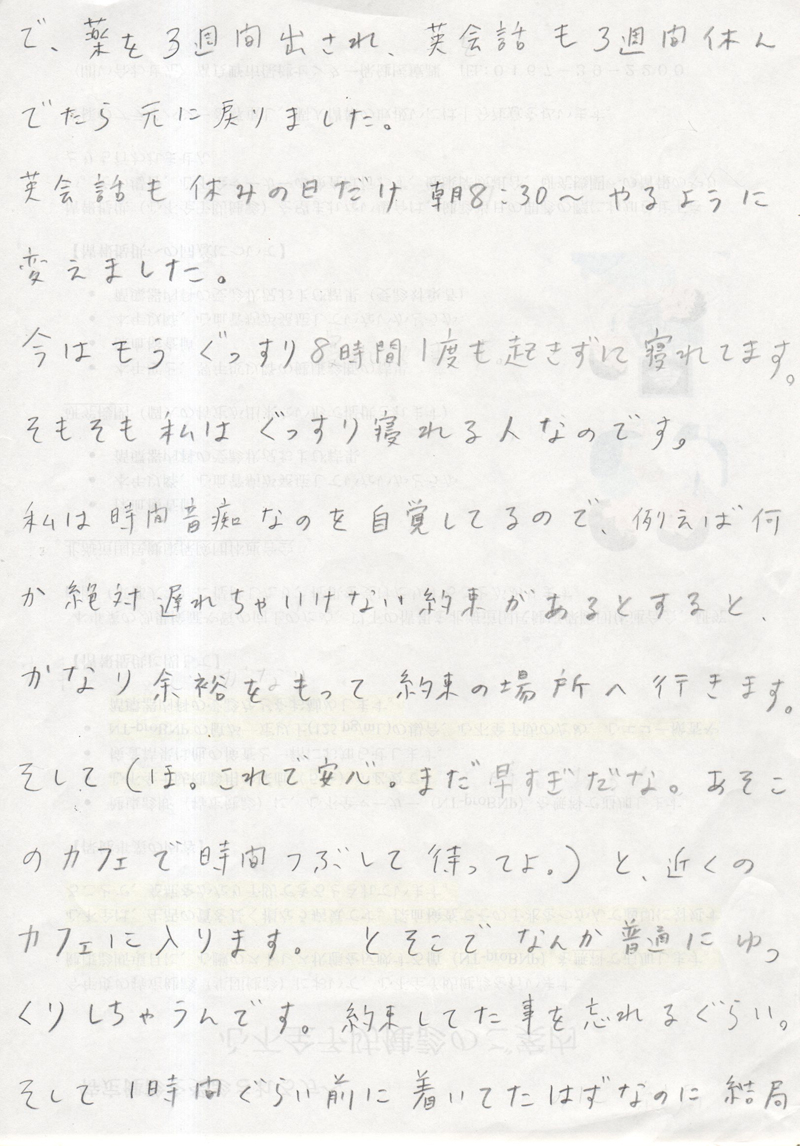 で、薬を3週間出され、英会話も3週間休ん
でたら元に戻りました。
英会話も休みの日だけ朝8:30～やるように
変えました。
今はもうぐっすり8時間1度も起きずに寝れてます。
そもそも私はぐっすり寝れる人なのです。
私は時間音痴なのを自覚してるので、例えば何
か絶対遅れちゃいけない約束があるとすると、
かなり余裕をもって約束の場所へ行きます。
そして(は。これで安心。まだ早すぎだな。あそこ
のカフェで時間つぶして待ってよ。)と、近くの
カフェに入ります。とそこでなんか普通にゆっ
くりしちゃうんです。約束してた事を忘れるぐらい。
そして1時間ぐらい前に着いてたはずなのに結局